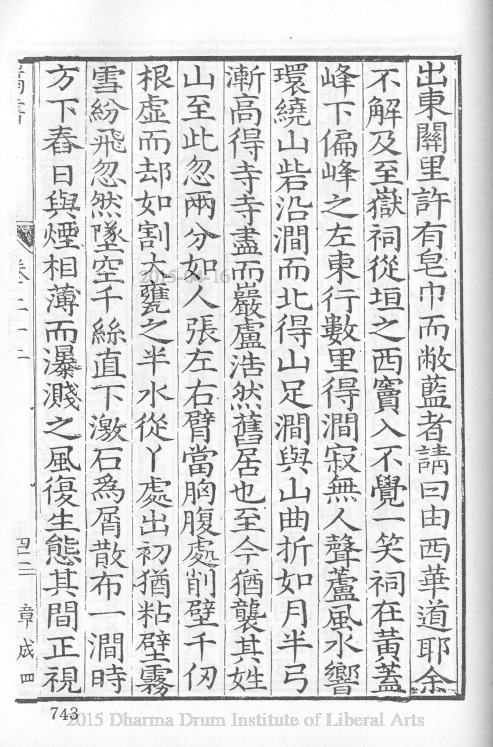 出東關里許有皂巾而敝藍者請曰由西華道耶余
不解及至嶽祠從垣之西竇入不覺一笑祠在黃蓋
峰下偏峰之左東行數里得澗寂無人聲蘆風水響
環繞山砦沿澗而北得山足澗與山曲折如月半弓
漸高得寺寺盡而巖盧浩然舊居也至今猶襲其姓
山至此忽兩分如人張左右臂當胸腹處削壁千仞
根虛而却如割大甕之半水從丫處出初猶粘壁霧
雪紛飛忽然墜空千絲直下激石為屑散布一澗時
方下舂日與煙相薄而瀑濺之風復生態其間正視
卷二十二
四二
章成四
743
2015-03-16
2015 Dharma Drum Institute of Liberal Arts